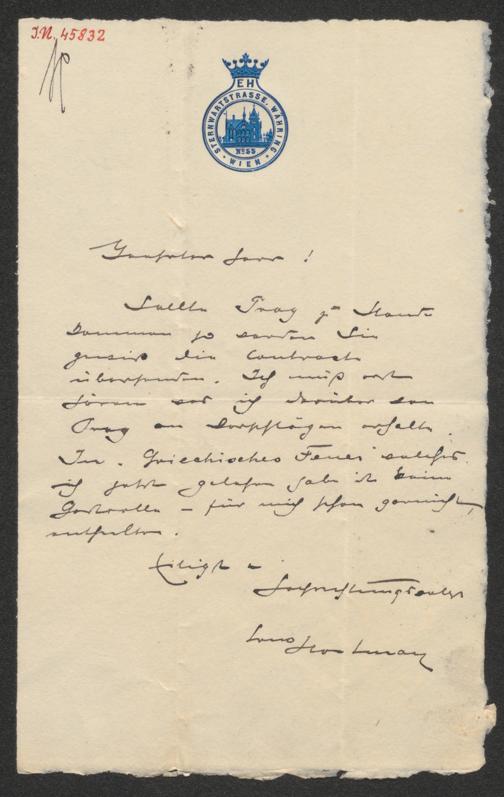 I.N. 45832
EH
STERNWARTSTRASSE. WÄHRING.
No 55
WIEN
Geehrter Herr!
Sollte Prag zu Stande
kommen so werden Sie
gewiß die Contracte
übersenden. Ich muß erst
hören was ich darüber von
Prag an Vorschlägen erhalte.
In "Griechisches Feuer" welches
ich jetzt gelesen habe ist keine
Gastrolle – für mich schon gar nicht,
enthalten.
Eiligst u
Hochachtungsvollst